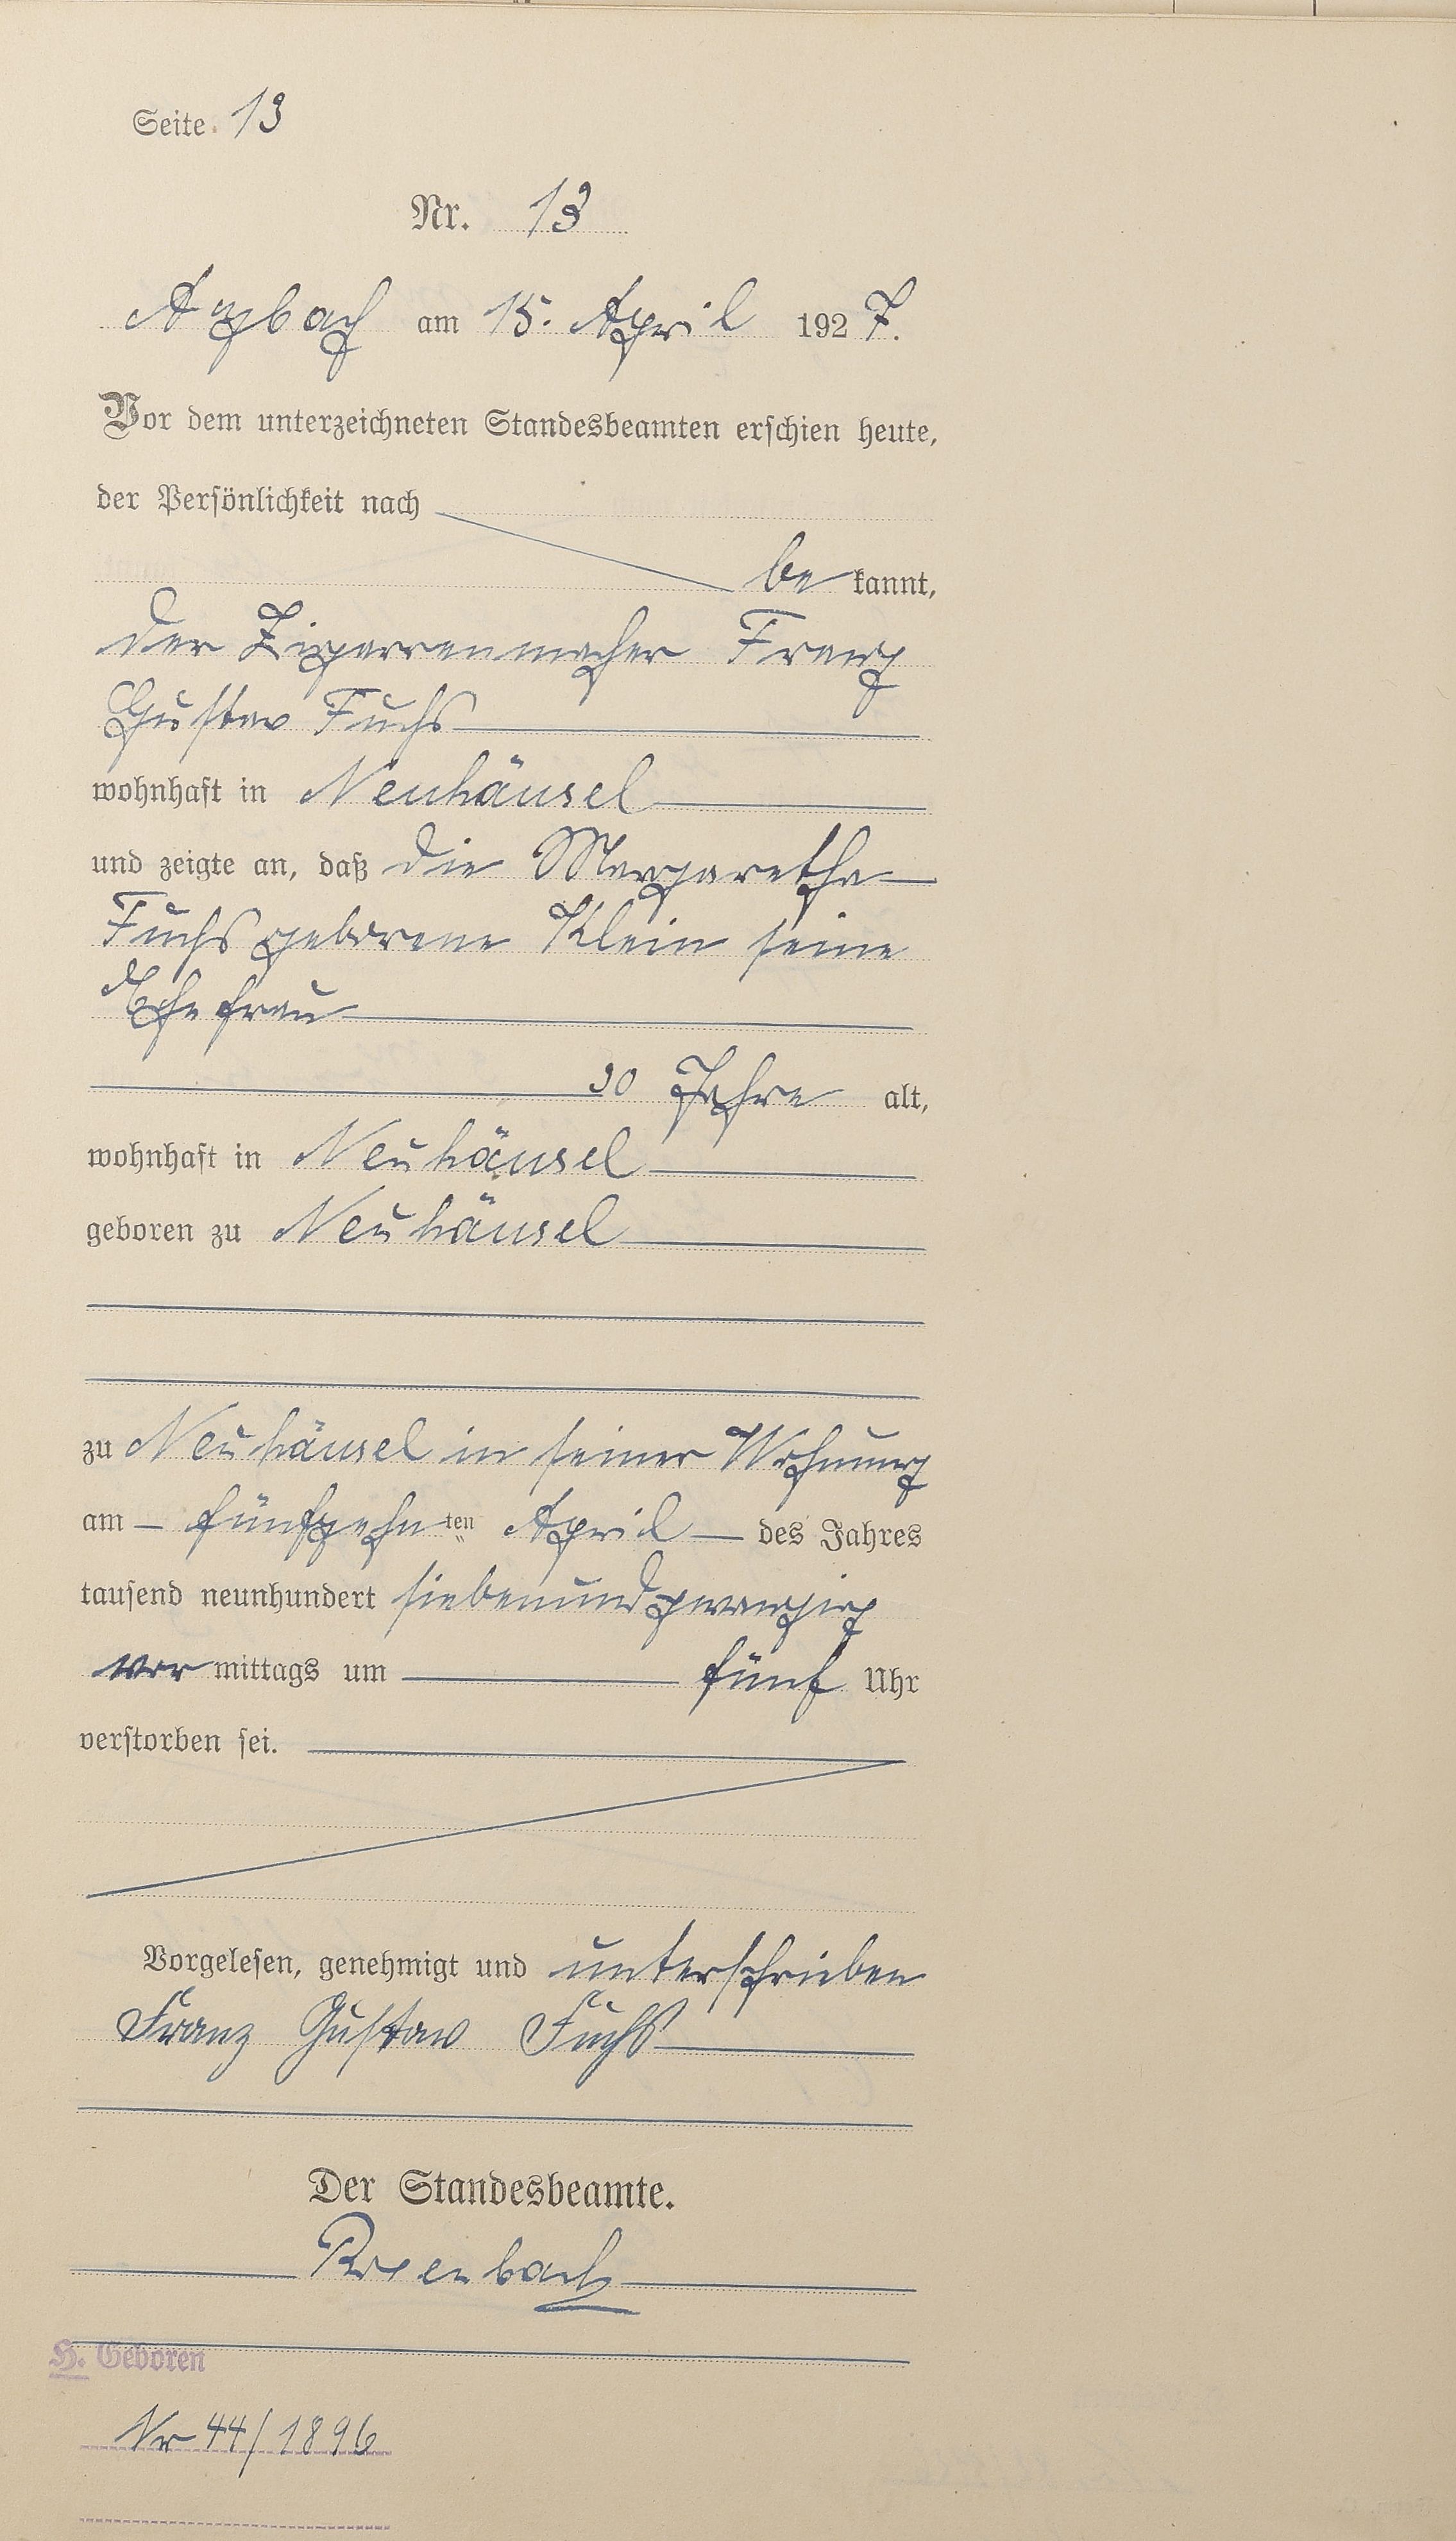 Seite 13
Nr. 13
Arzbach am 15. April 1927.
Vor dem unterzeichneten Standesbeamten erschien heute,
der Persönlichkeit nach
be kannt,
der Zigarrenmacher Franz
Gustav Fuchs
wohnhaft in Neuhäusel
und zeigte an, daß die Margaretha
Fuchs geborene Klein seine
Ehefrau
30 Jahre alt,
wohnhaft in Neuhäusel
geboren zu Neuhäusel
zu Neuhäusel in seiner Wohnung
am fünfzehnten April des Jahres
tausend neunhundert siebenundzwanzig
vor mittags um fünf Uhr
verstorben sei.
Vorgelesen, genehmigt und unterschrieben
Franz Gustav Fuchs
Der Standesbeamte.
H. Geboren
Nr 44/1896